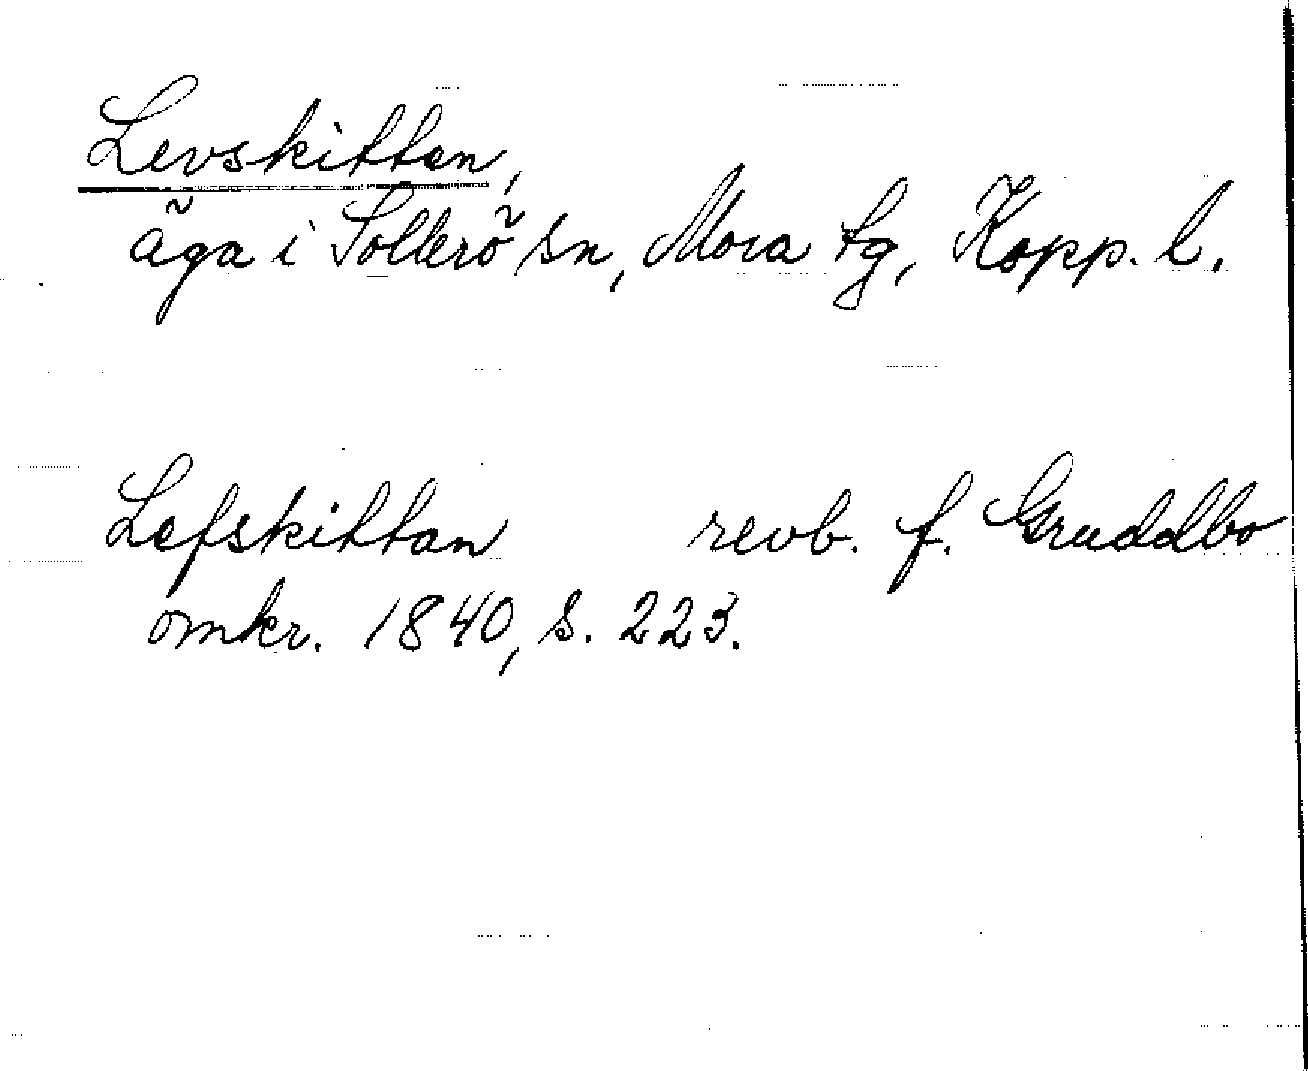 Levskittan,
äga i Sollerö sn, Mora tg, Kopp. l.
Lefskittan revb. f. Gruddbo
omkr. 1840, s. 223.